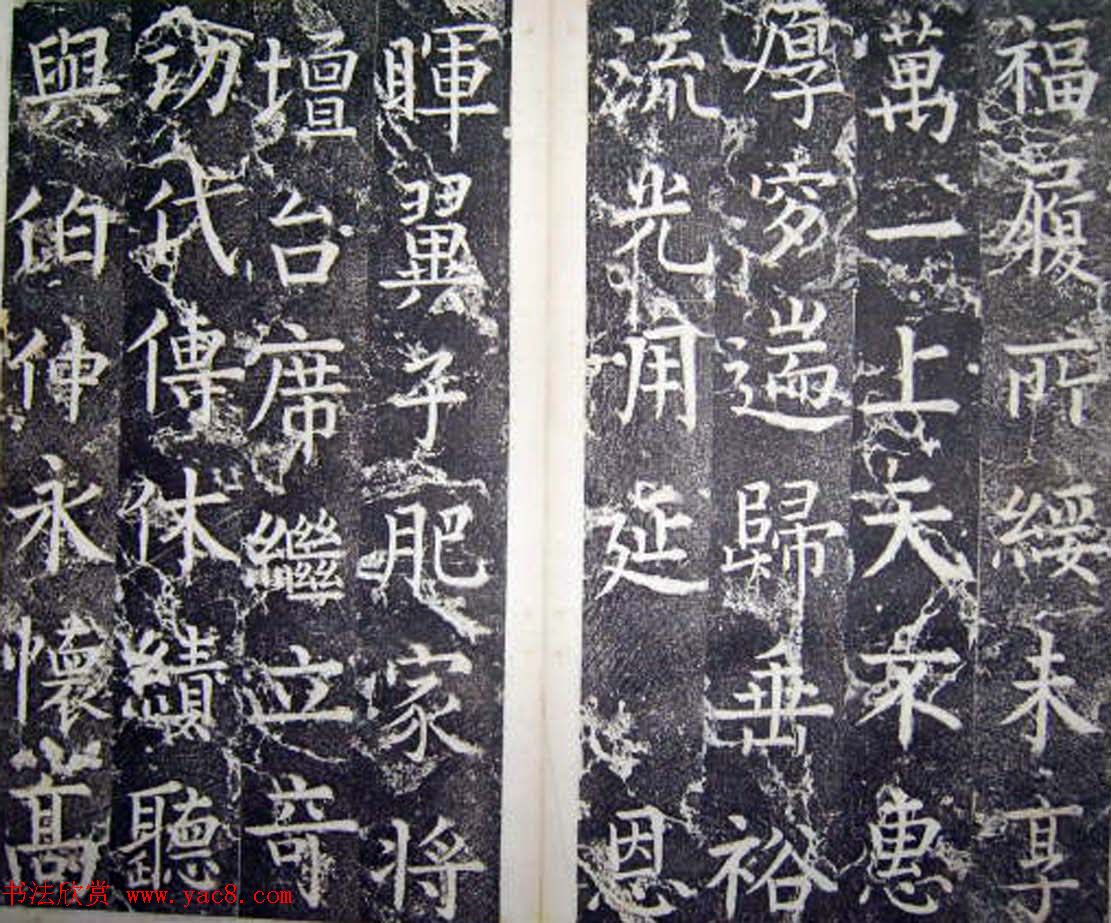 福履所綏未享
萬一上天不惠
厚穸遄歸垂裕
流光用延恩
暉翼子肥家将
壇台席繼立奇
功代傳休績聽
與伯仲永懷高
书法欣赏 www.yac8.com